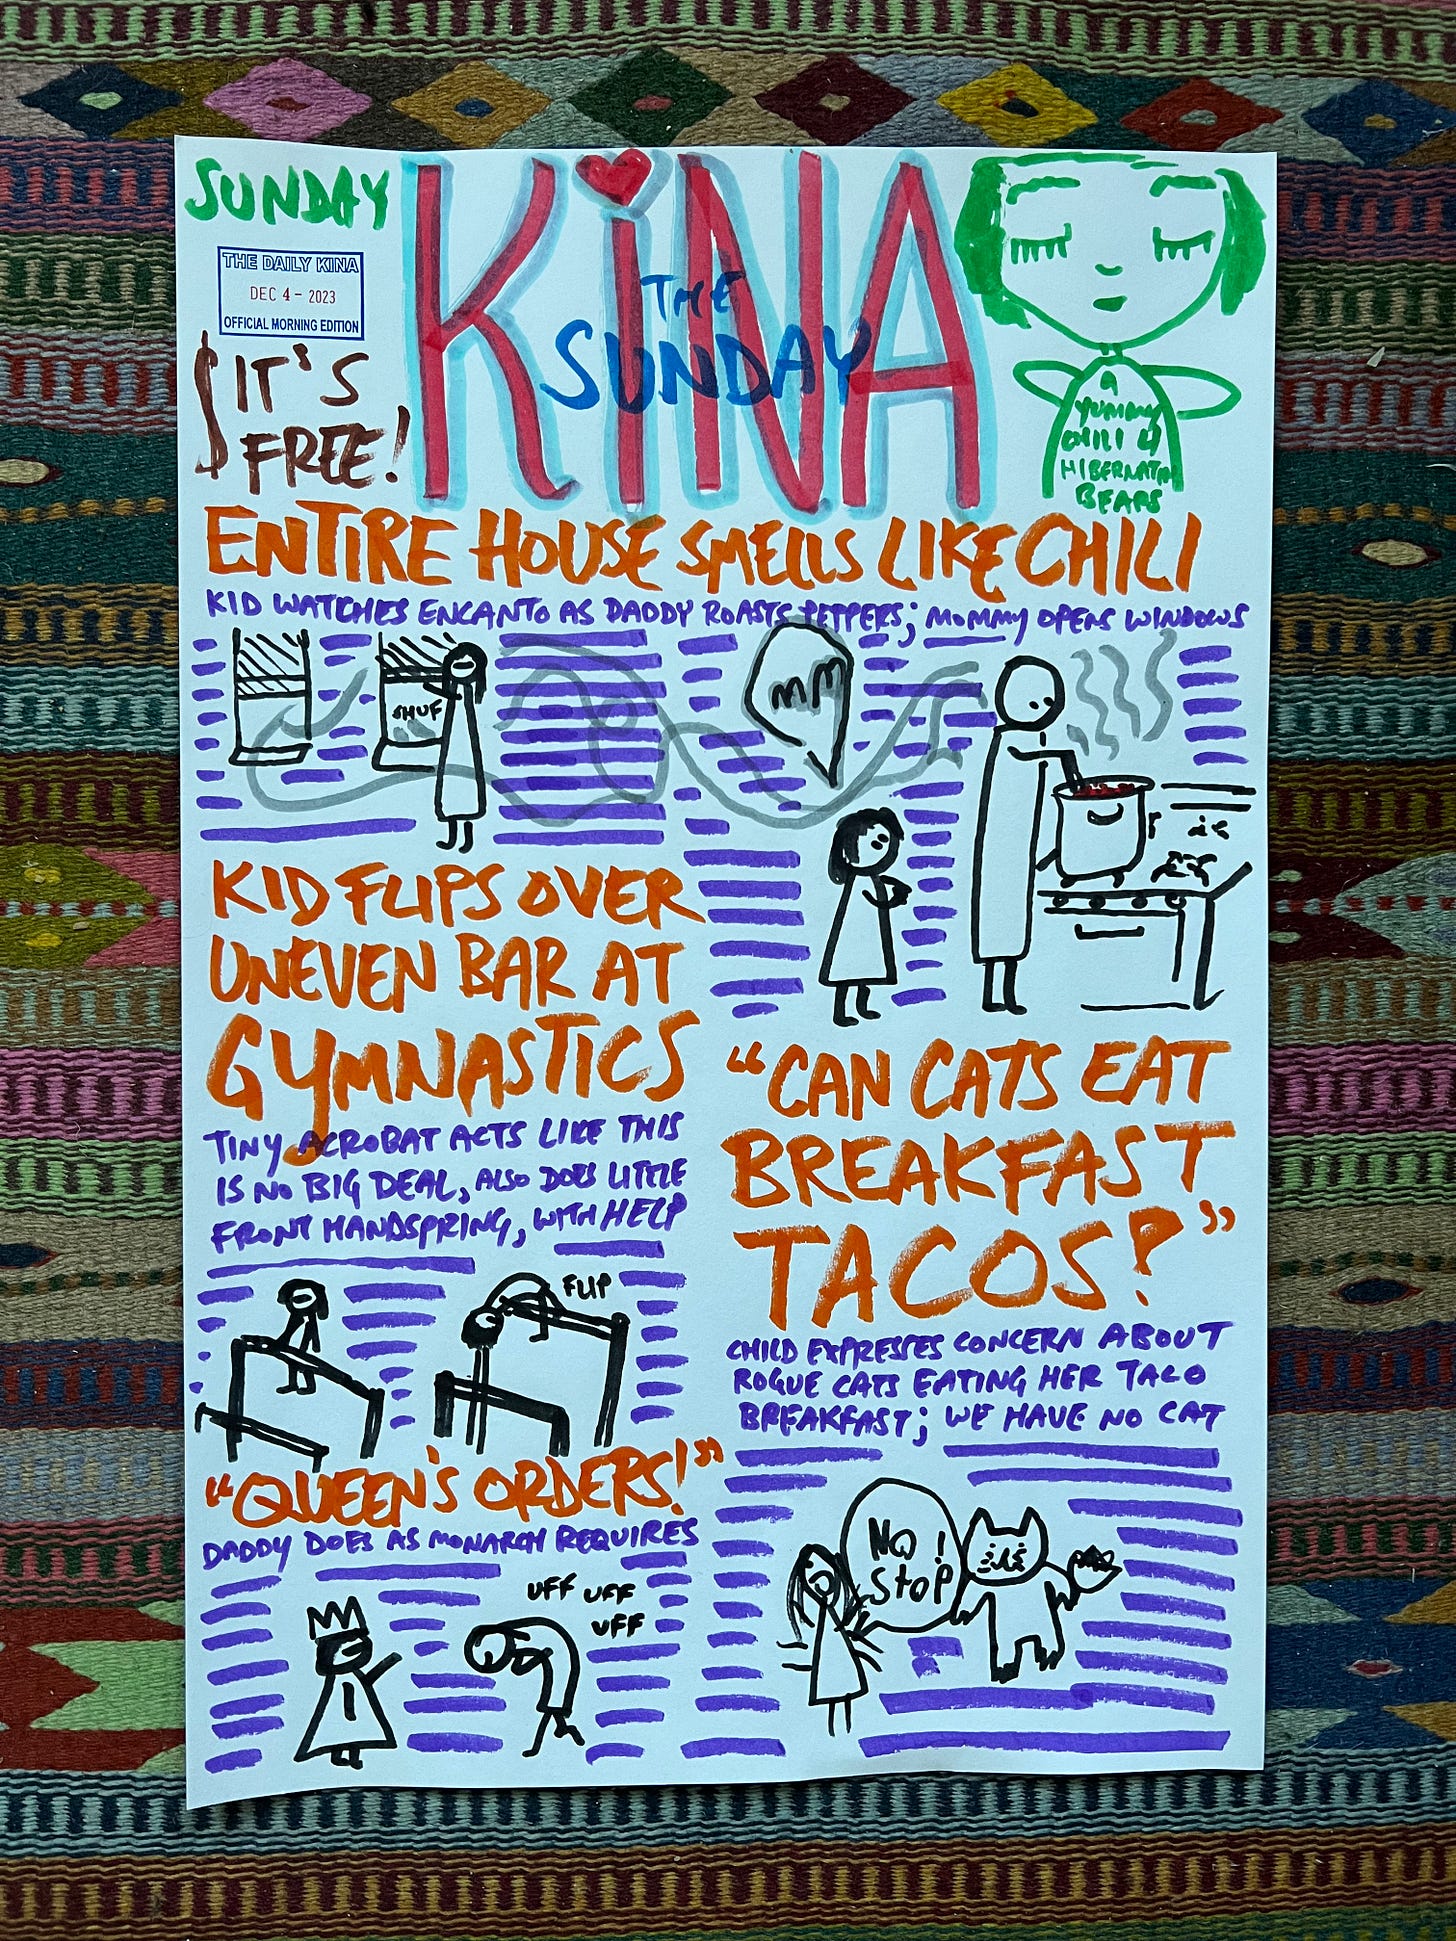 SUNDAY
THE DAILY KINA
DEC 4 - 2023
OFFICIAL MORNING EDITION
$ IT'S
FREE!
KiNA
THE
SUNDAY
A
YUMMY
CHILI 4
HIBERNATIN
BEARS
ENTIRE HOUSE SMELLS LIKE CHILI
KID WATCHES ENCANTO AS DADDY ROASTS PEPPERS; MOMMY OPENS WINDOWS
SHUF
MM
KID FLIPS OVER
UNEVEN BAR AT
GYMNASTICS
TINY ACROBAT ACTS LIKE THIS
IS NO BIG DEAL, ALSO DOES LITTLE
FRONT HANDSPRING, WITH HELP
FLIP
"QUEEN'S ORDERS!"
DADDY DOES AS MONARCH REQUIRES
UFF UFF
UFF
"CAN CATS EAT
BREAKFAST
TACOS?"
CHILD EXPRESSES CONCERN ABOUT
ROGUE CATS EATING HER TACO
BREAKFAST; WE HAVE NO CAT
NO!
STOP